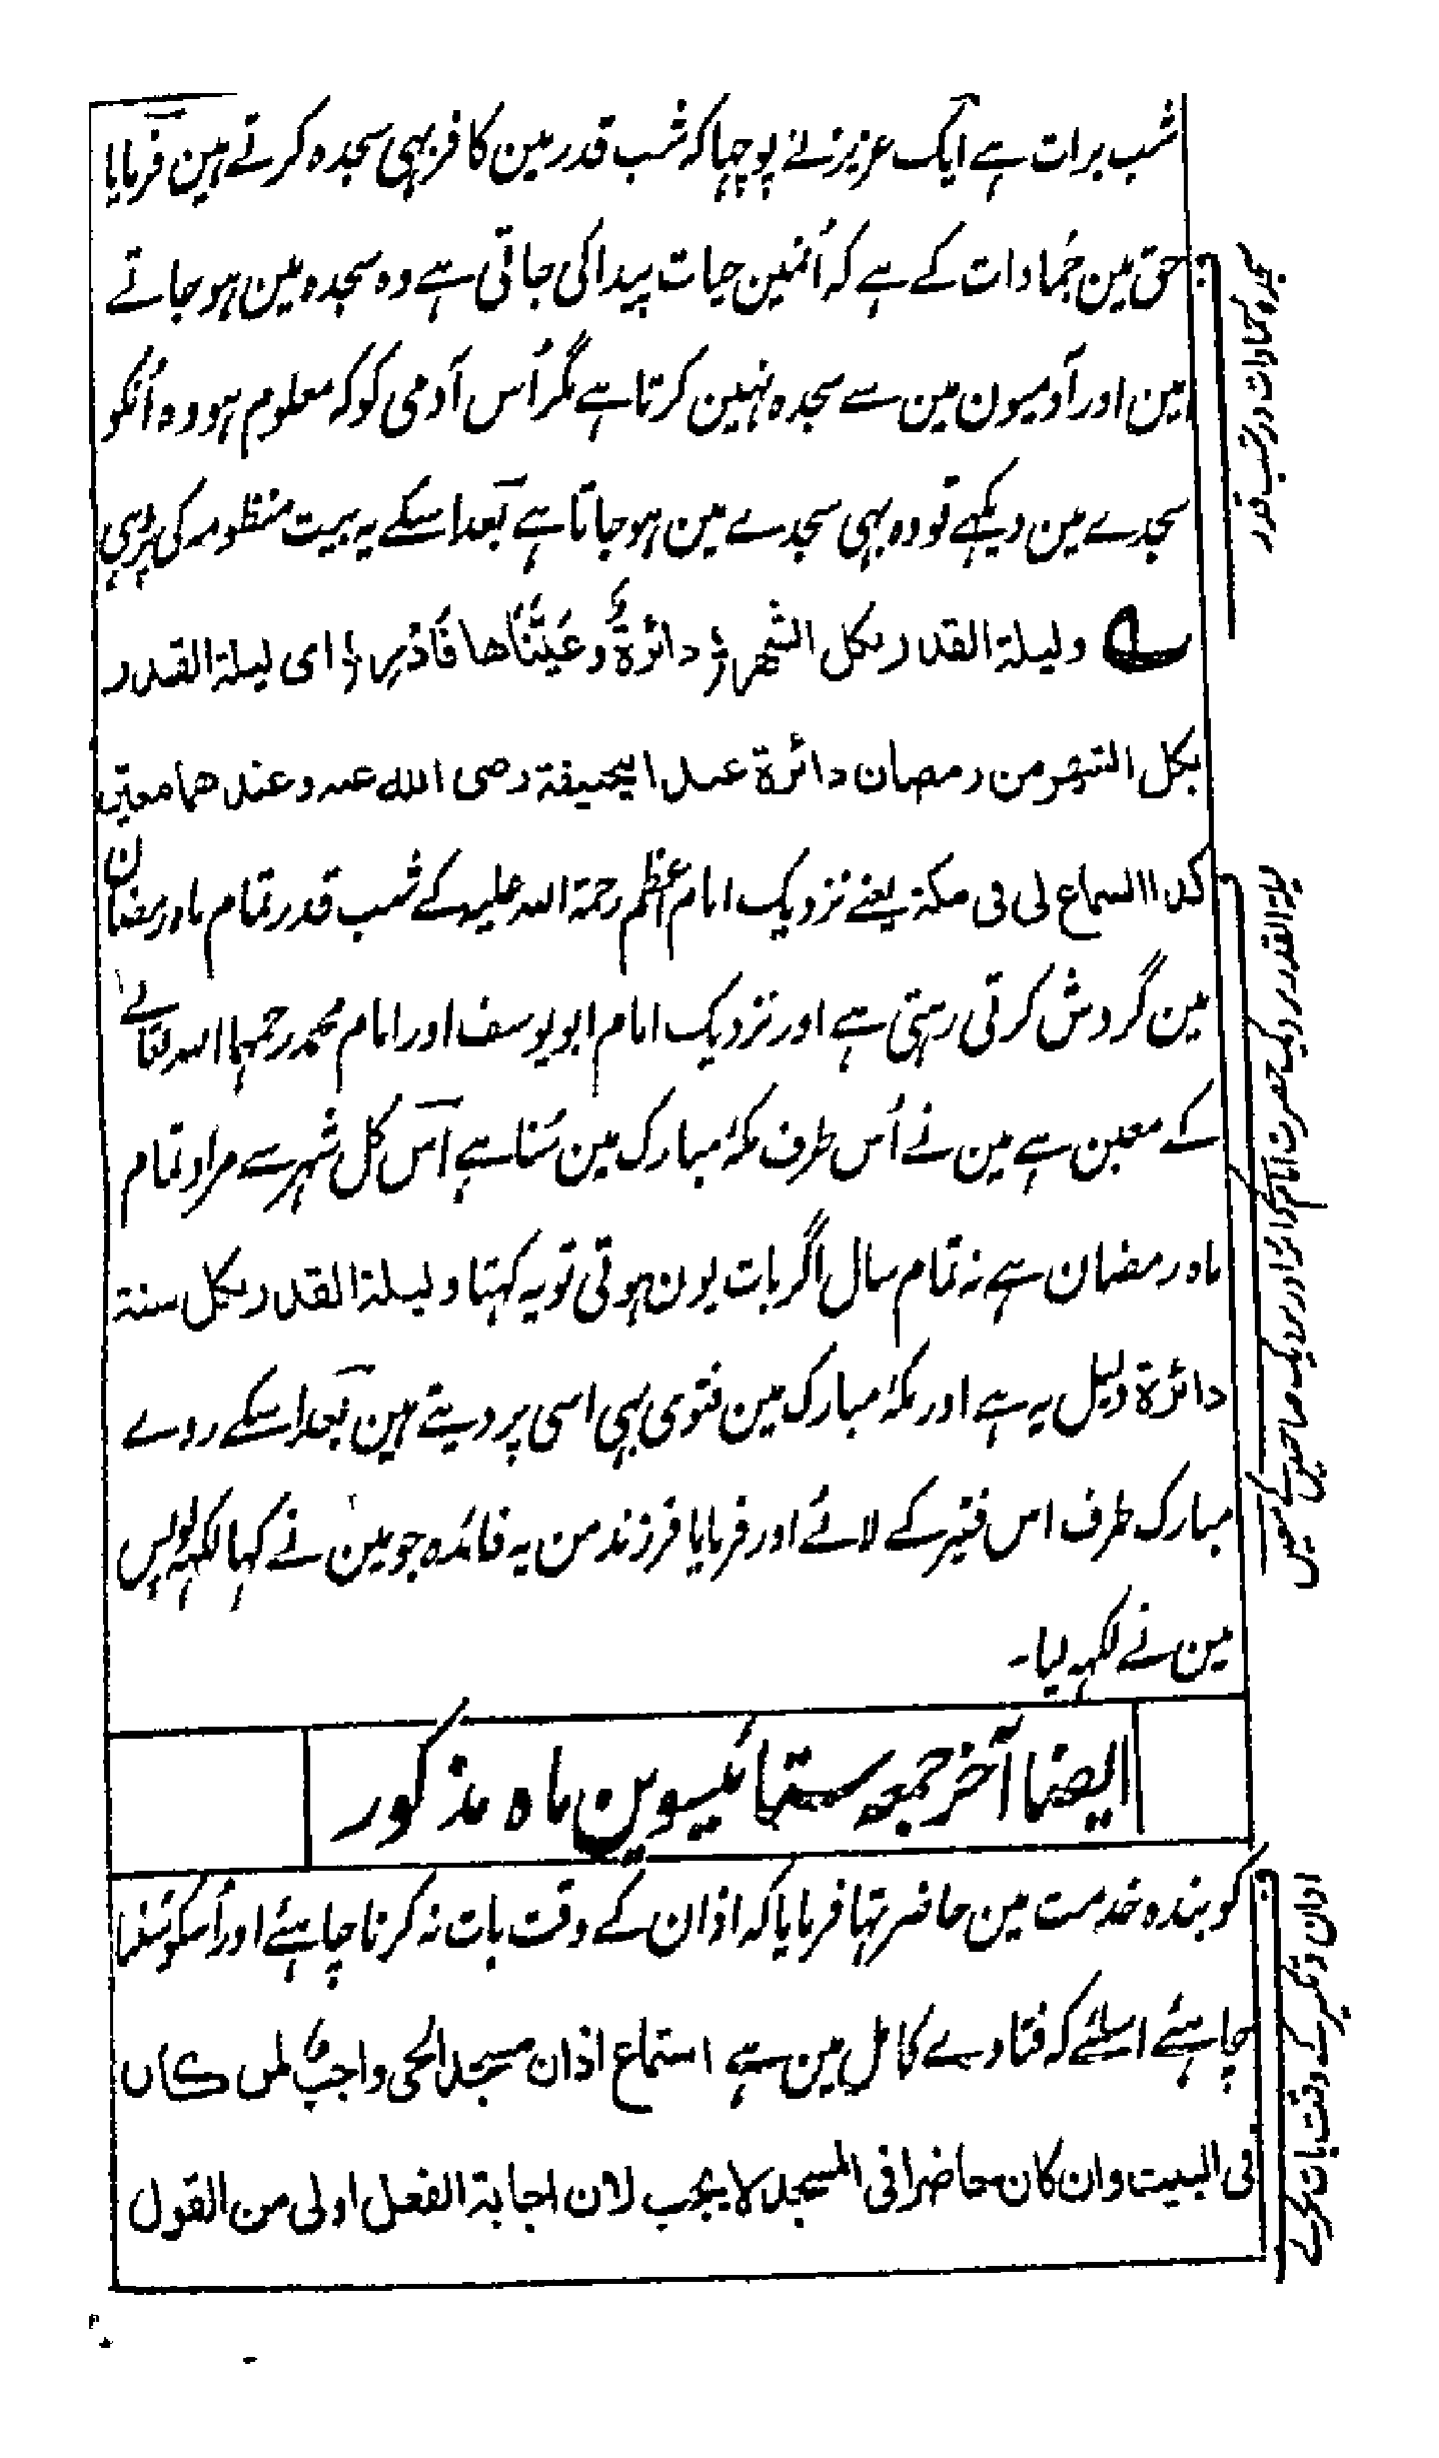 شب برات ہے ایک عزیز نے پوچہا کہ شب قدر مین کافر بہی سجدہ کرتے ہین فرمایا
حق مین جُمادات کے ہے کہ اُنمین حیات پیدا کی جاتی ہے وہ سجدہ مین ہو جاتے
ہین اور آدمیون مین سے سجدہ نہین کرتا ہے مگر اُس آدمی کو کہ معلوم ہو وہ اُنکو
سجدے مین دیکہے تو وہ بہی سجدے مین ہو جاتا ہے بعد اسکے یہ بیت منظومہ کی پڑہی
ولیلة القدر بکل الشهر دائرة وعیناها فأدر ای لیلة القدر
بکل الشهر من رمضان دائرة عند ابیحنیفة رضی الله عنه وعندهما معین
کذا السماع لی فی مکة یعنے نزدیک امام اعظم رحمة اللہ علیہ کے شب قدر تمام ماہ رمضان
مین گردش کرتی رہتی ہے اور نزدیک امام ابو یوسف اور امام محمد رحمہما اللہ تعالے
کے معین ہے مین نے اُس طرف مکۂ مبارک مین سُنا ہے اس کل شہر سے مراد تمام
ماہ رمضان ہے نہ تمام سال اگر بات یون ہوتی تو یہ کہتا ولیلة القدر بکل سنة
دائرة دلیل یہ ہے اور مکۂ مبارک مین فتوی بہی اسی پر دیتے ہین بعد اسکے روے
مبارک طرف اس فقیر کے لائے اور فرمایا فرزند من یہ فائدہ جو مین نے کہا لکہہ لو پس
مین نے لکہہ لیا۔
ایضا آخر جمعہ ستائیسوین ماہ مذکور
کو بندہ خدمت مین حاضر تہا فرمایا کہ اذان کے وقت بات نہ کرنا چاہئے اور اُسکو سُننا
چاہئے اسلئے کہ فتاوے کامل مین ہے استماع اذان مسجد الحی واجب لمن کان
فی البیت وان کان حاضرا فی المسجد لا یجب لان اجابة الفعل اولی من القول
سجدہ جمادات در شب قدر
اذان و تکبیر کے وقت بات نکرے